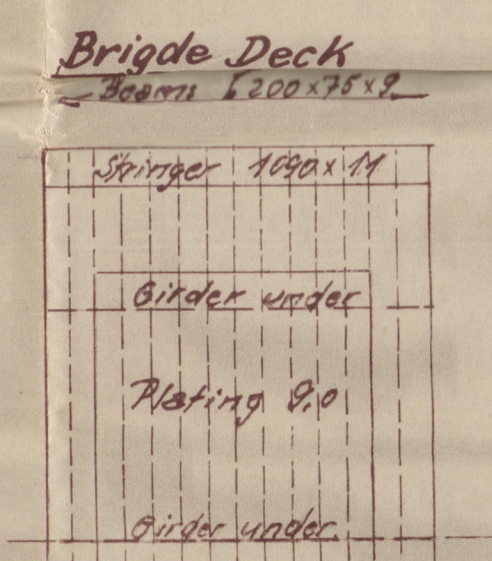 Brigde Deck
Beams [200×75×9
Stringer 1090×11
Girder under
Plating 9,0
Girder under.